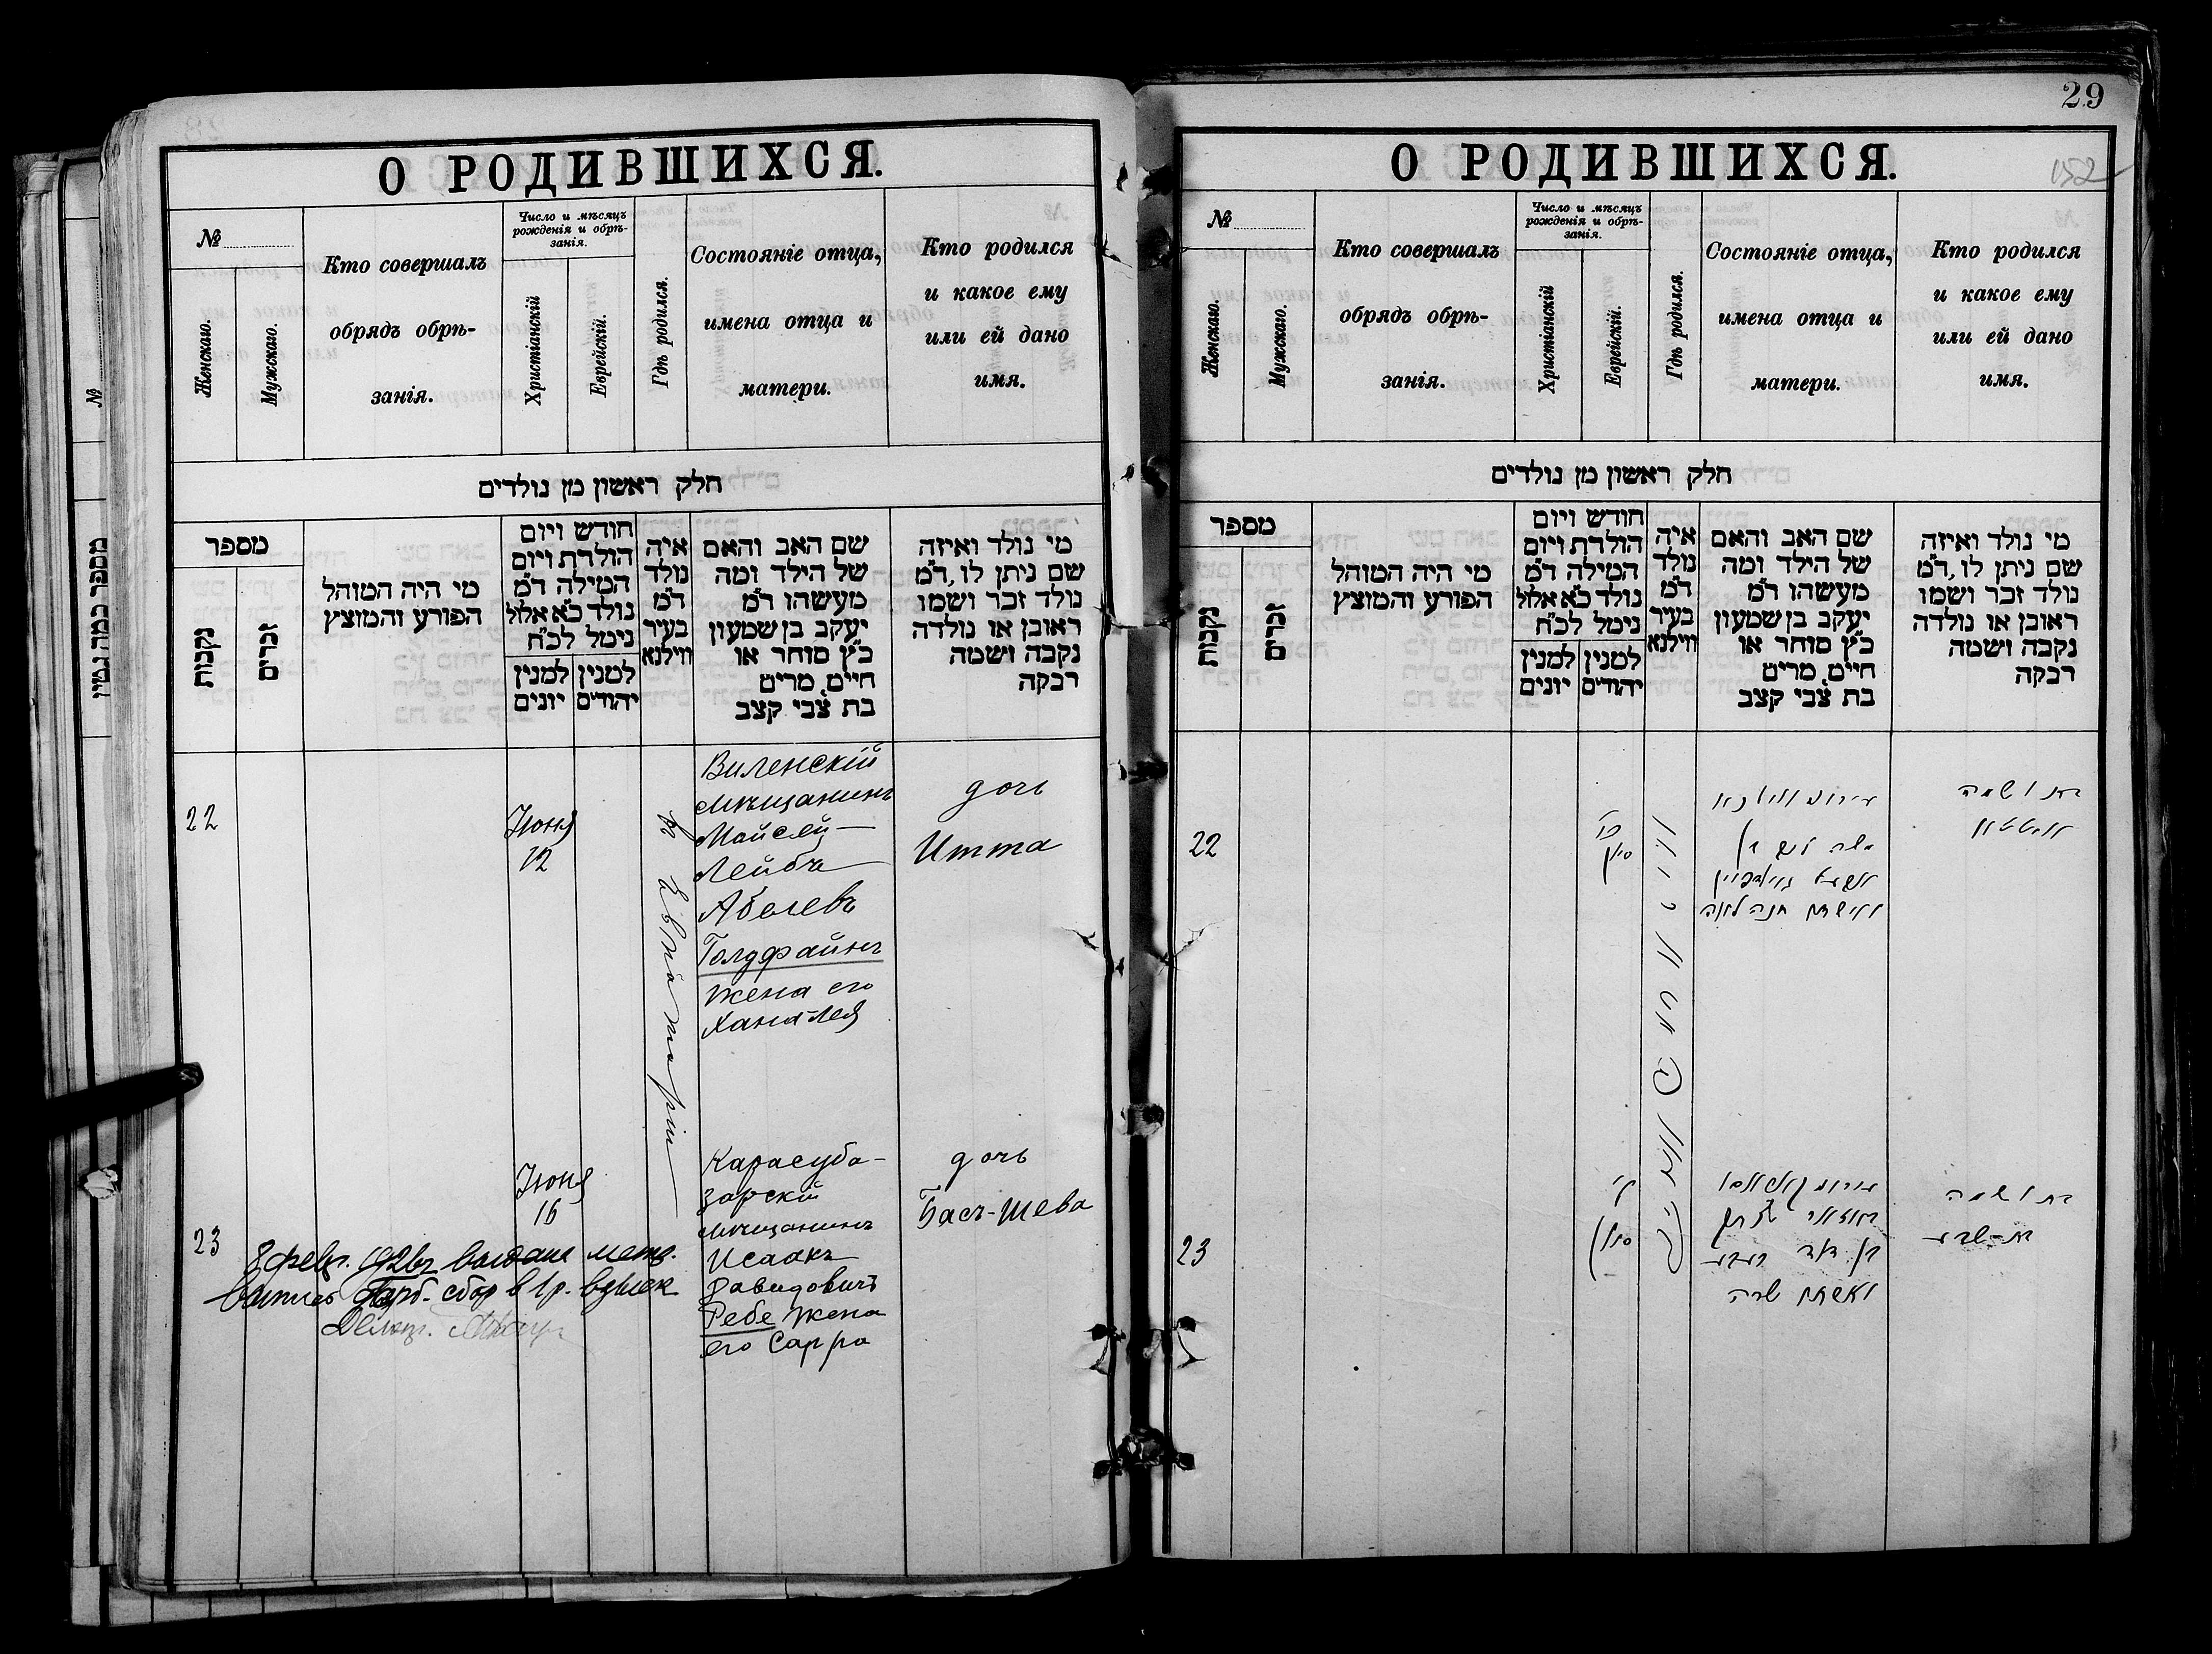 О РОДИВШИХСЯ.
№
Женскаго.
Мужскаго.
Кто совершалъ
обрядъ обрѣ-
занія.
Число и мѣсяцъ
рожденія и обрѣ-
занія.
Христіанскій
Еврейскій.
Гдѣ родился.
Состояніе отца,
имена отца и
матери.
Кто родился
и какое ему
или ей дано
имя.
חלק ראשון מן נולדים
מספר
נקבות
זכרים
מי היה המוהל
הפורע והמוצץ
חודש ויום
הולדת ויום
המילה ד״מ
נולד כ״א אלול
נימל לכ״ח
למנין
יונים
למנין
יהודים
איה
נולד
ד״מ
בעיר
ווילנא
שם האב והאם
של הילד ומה
מעשהו ד״מ
יעקב בן שמעון
כ״ץ סוחר או
חיים, מרים
בת צבי קצב
מי נולד ואיזה
שם ניתן לו, ד״מ
נולד זכר ושמו
ראובן או נולדה
נקבה ושמה
רבקה
22
Іюня
12
въ Евпаторіи
Виленскій
мѣщанинъ
Мойсей-
Лейбъ
Абелевъ
Голдфайнъ
жена его
Хана-Лея
дочь
Итта
23
Іюня
16
Карасуба-
зарскій
мѣщанинъ
Исаакъ
Давидовичъ
Ребе жена
его Сарра
дочь
Басъ-Шева
29
152
О РОДИВШИХСЯ.
№
Женскаго.
Мужскаго.
Кто совершалъ
обрядъ обрѣ-
занія.
Число и мѣсяцъ
рожденія и обрѣ-
занія.
Христіанскій
Еврейскій.
Гдѣ родился.
Состояніе отца,
имена отца и
матери.
Кто родился
и какое ему
или ей дано
имя.
חלק ראשון מן נולדים
מספר
נקבות
זכרים
מי היה המוהל
הפורע והמוצץ
חודש ויום
הולדת ויום
המילה ד״מ
נולד כ״א אלול
נימל לכ״ח
למנין
יונים
למנין
יהודים
איה
נולד
ד״מ
בעיר
ווילנא
שם האב והאם
של הילד ומה
מעשהו ד״מ
יעקב בן שמעון
כ״ץ סוחר או
חיים, מרים
בת צבי קצב
מי נולד ואיזה
שם ניתן לו, ד״מ
נולד זכר ושמו
ראובן או נולדה
נקבה ושמה
רבקה
22
סיון
ואשתו חנה לאה
בת ושמה
23
סיון
בן דוד
ואשתו שרה
בת ושמה
בת-שבע